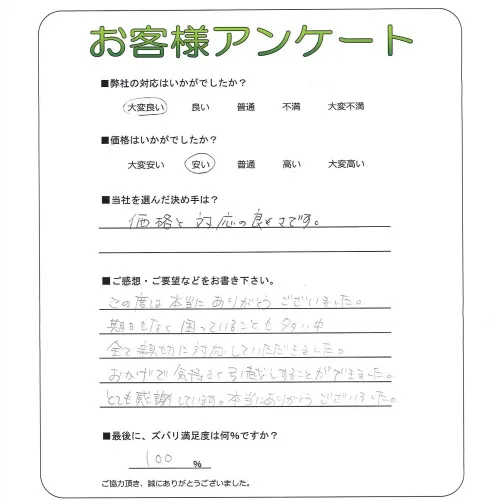 お客様アンケート
■弊社の対応はいかがでしたか？
大変良い 良い 普通 不満 大変不満
■価格はいかがでしたか？
大変安い 安い 普通 高い 大変高い
■当社を選んだ決め手は？
価格と対応の良さです。
■ご感想・ご要望などをお書き下さい。
この度は本当にありがとうございました。
期日もなく困っていることも多い中
全て親切に対応していただきました。
おかげで気持よく引越しすることができました。
とても感謝しています。本当にありがとうございました。
■最後に、ズバリ満足度は何%ですか？
100 %
ご協力頂き、誠にありがとうございました。